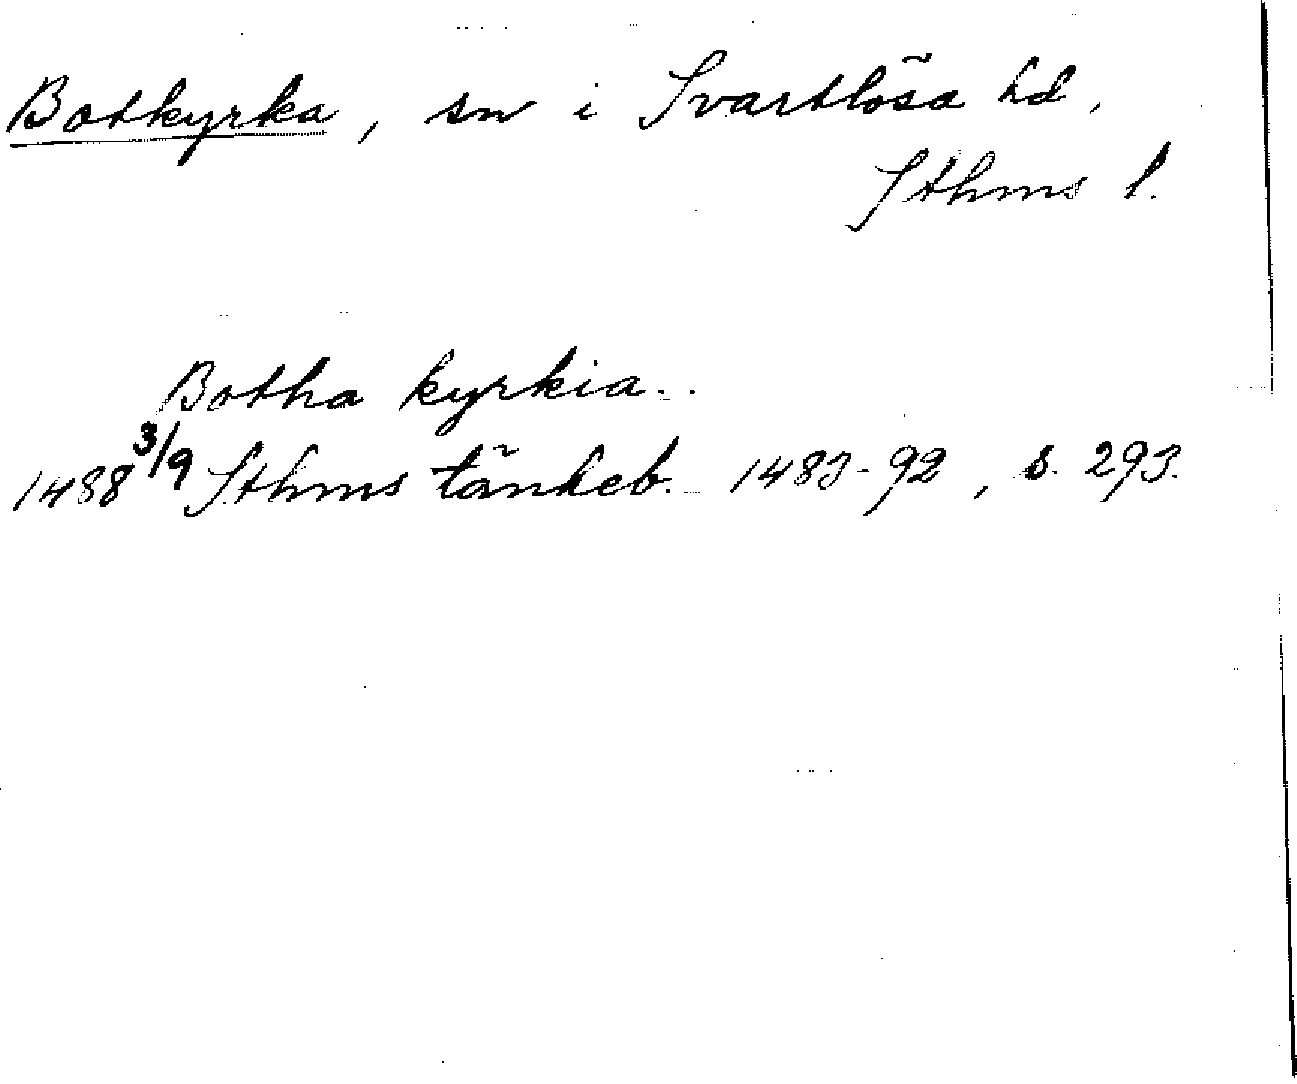 Botkyrka, sn i Svartlösa hd,
Sthms l.
Botha kyrkia.
1488 3/9 Sthms tänkeb. 1483-92, s. 293.